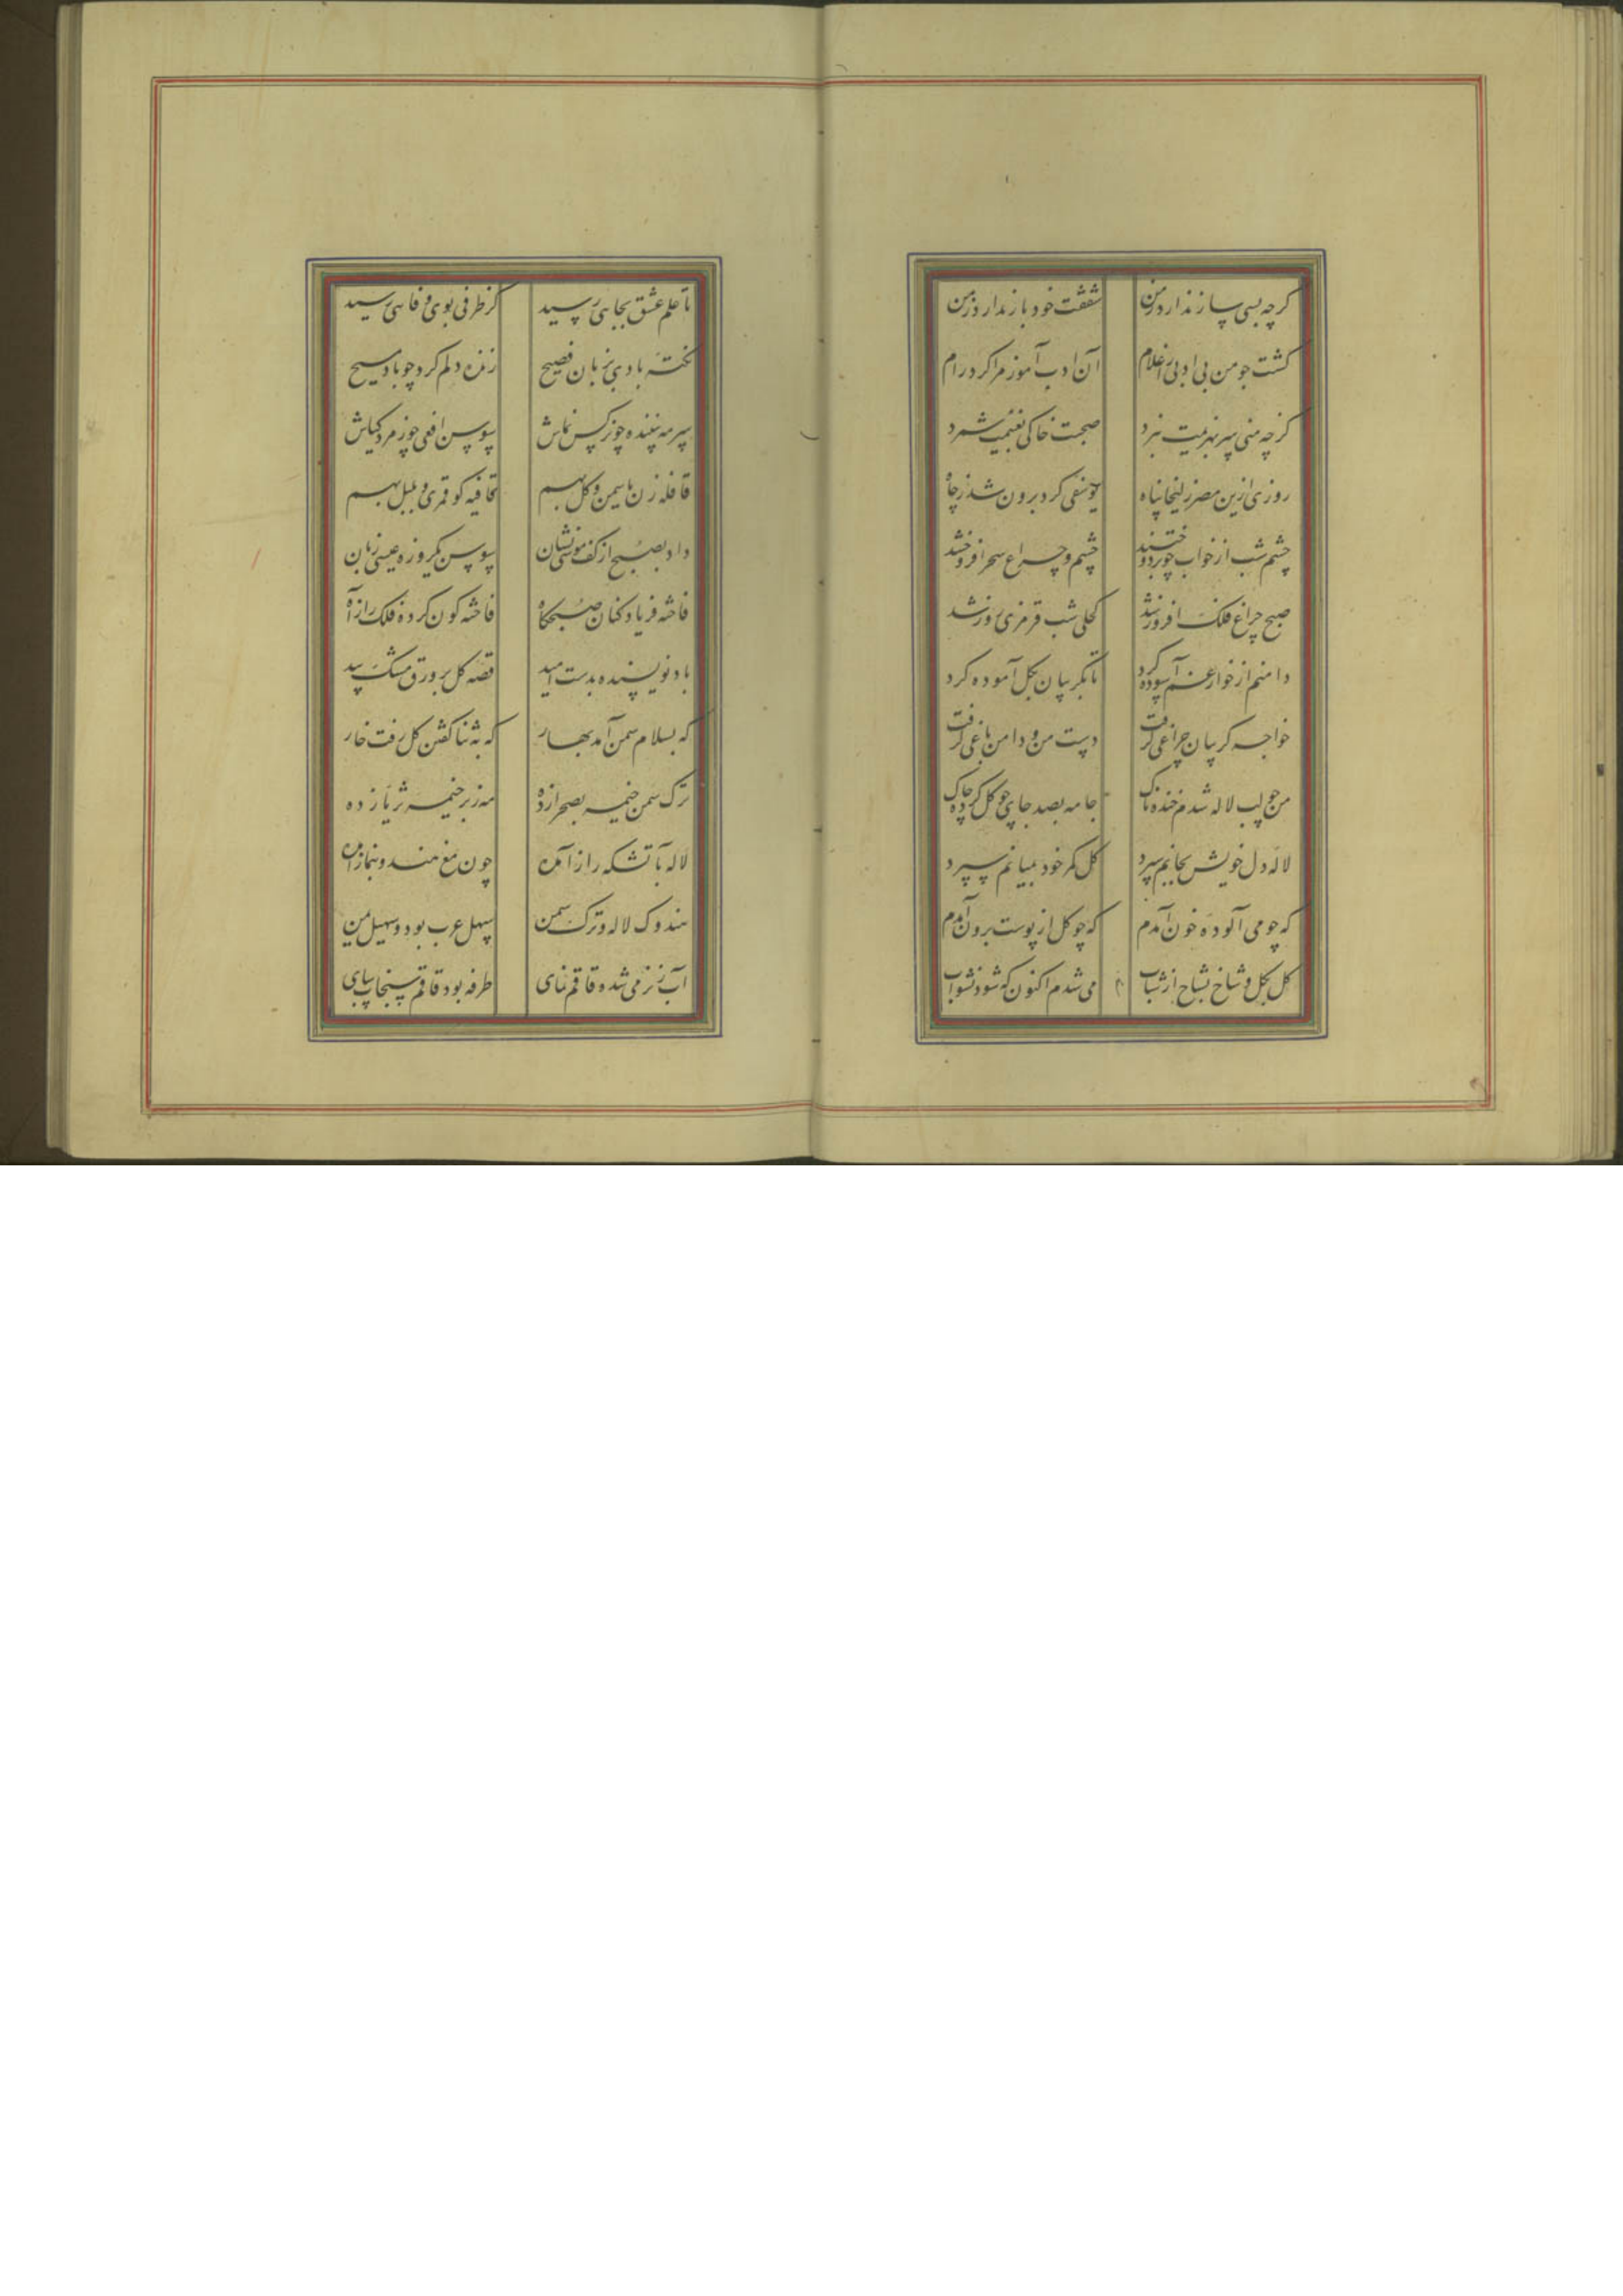 کرچه بسی ساز ندارد ز من شفقت خود باز ندارد ز من
کشت چو من بی ادبی را غلام آن ادب آموز مرا کرد رام
کرچه منی سر بهزیمت نبرد صحبت خاکی بغنیمت شمرد
روزی ازین مصر زلیخا پناه یوسفی کرد برون شد ز چاه
چشم شب از خواب چو بردوختند چشم و چراغ سحر افروختند
صبح چراغ فلک افروز شد کحلی شب قرمزی روز شد
دامنم از خوار غم آسوده کرد تا بکریبان بکل آموده کرد
خواجه کریبان چراغی کرفت دست من و دامن باغی کرفت
من چو لب لاله شدم خنده ناک جامه بصد جای چو کل کرده چاک
لاله دل خویش بجانم سپرد کل کمر خود بمیانم سپرد
که چو می آلوده خون آمدم که چو کل از پوست برون آمدم
کل بکل و شاخ بشاخ از شتاب می شدم اکنون که شود نشو آب
تا علم عشق بجایی رسید کز طرفی بوی وفایی رسید
نکته بادی بزبان فصیح زنده دلم کرد چو باد مسیح
سرمه بیننده چو نرکس نماش سوسن افعی چو زمرد کیاش
قافله زن یاسمن و کل بهم قافیه کو قمری و بلبل بهم
داد بصبح از کف موسی نشان سوسن یکروزه عیسی زبان
فاخته فریاد کنان صبحکاه فاخته کون کرده فلک را ز آه
باد نویسنده بدست امید قصه کل بر ورق مشک بید
که بسلام سمن آمد بهار که به ثنا کفتن کل رفت خار
ترک سمن خیمه بصحرا زده مه زبر خیمه ثریا زده
لاله بآتشکه راز آمده چون مغ هندو بنماز آمده
هندوک لاله و ترک سمن سهل عرب بود و سهیل یمن
آب ز نرمی شده قاقم نمای طرفه بود قاقم سنجاب سای